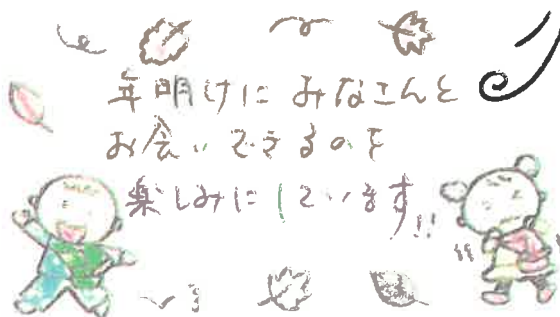 年明けにみなさんと
お会いできるのを
楽しみにしています!!